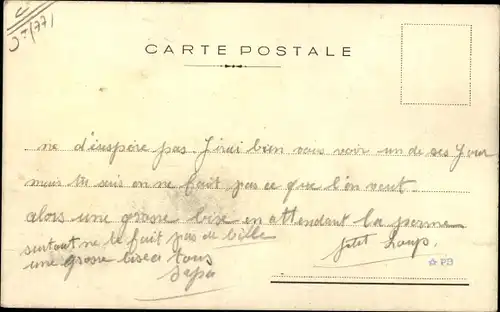 J-(77)
CARTE POSTALE
ne d'inspire pas. J'irai bien vous voir un de ses Jour
mais tu sais on ne fait pas ce que l'on veut.
alors une grosse bise en attendant la
surtout ne te fait pas de bille
une grosse bise a tous
Petit Loup.
☆ PB